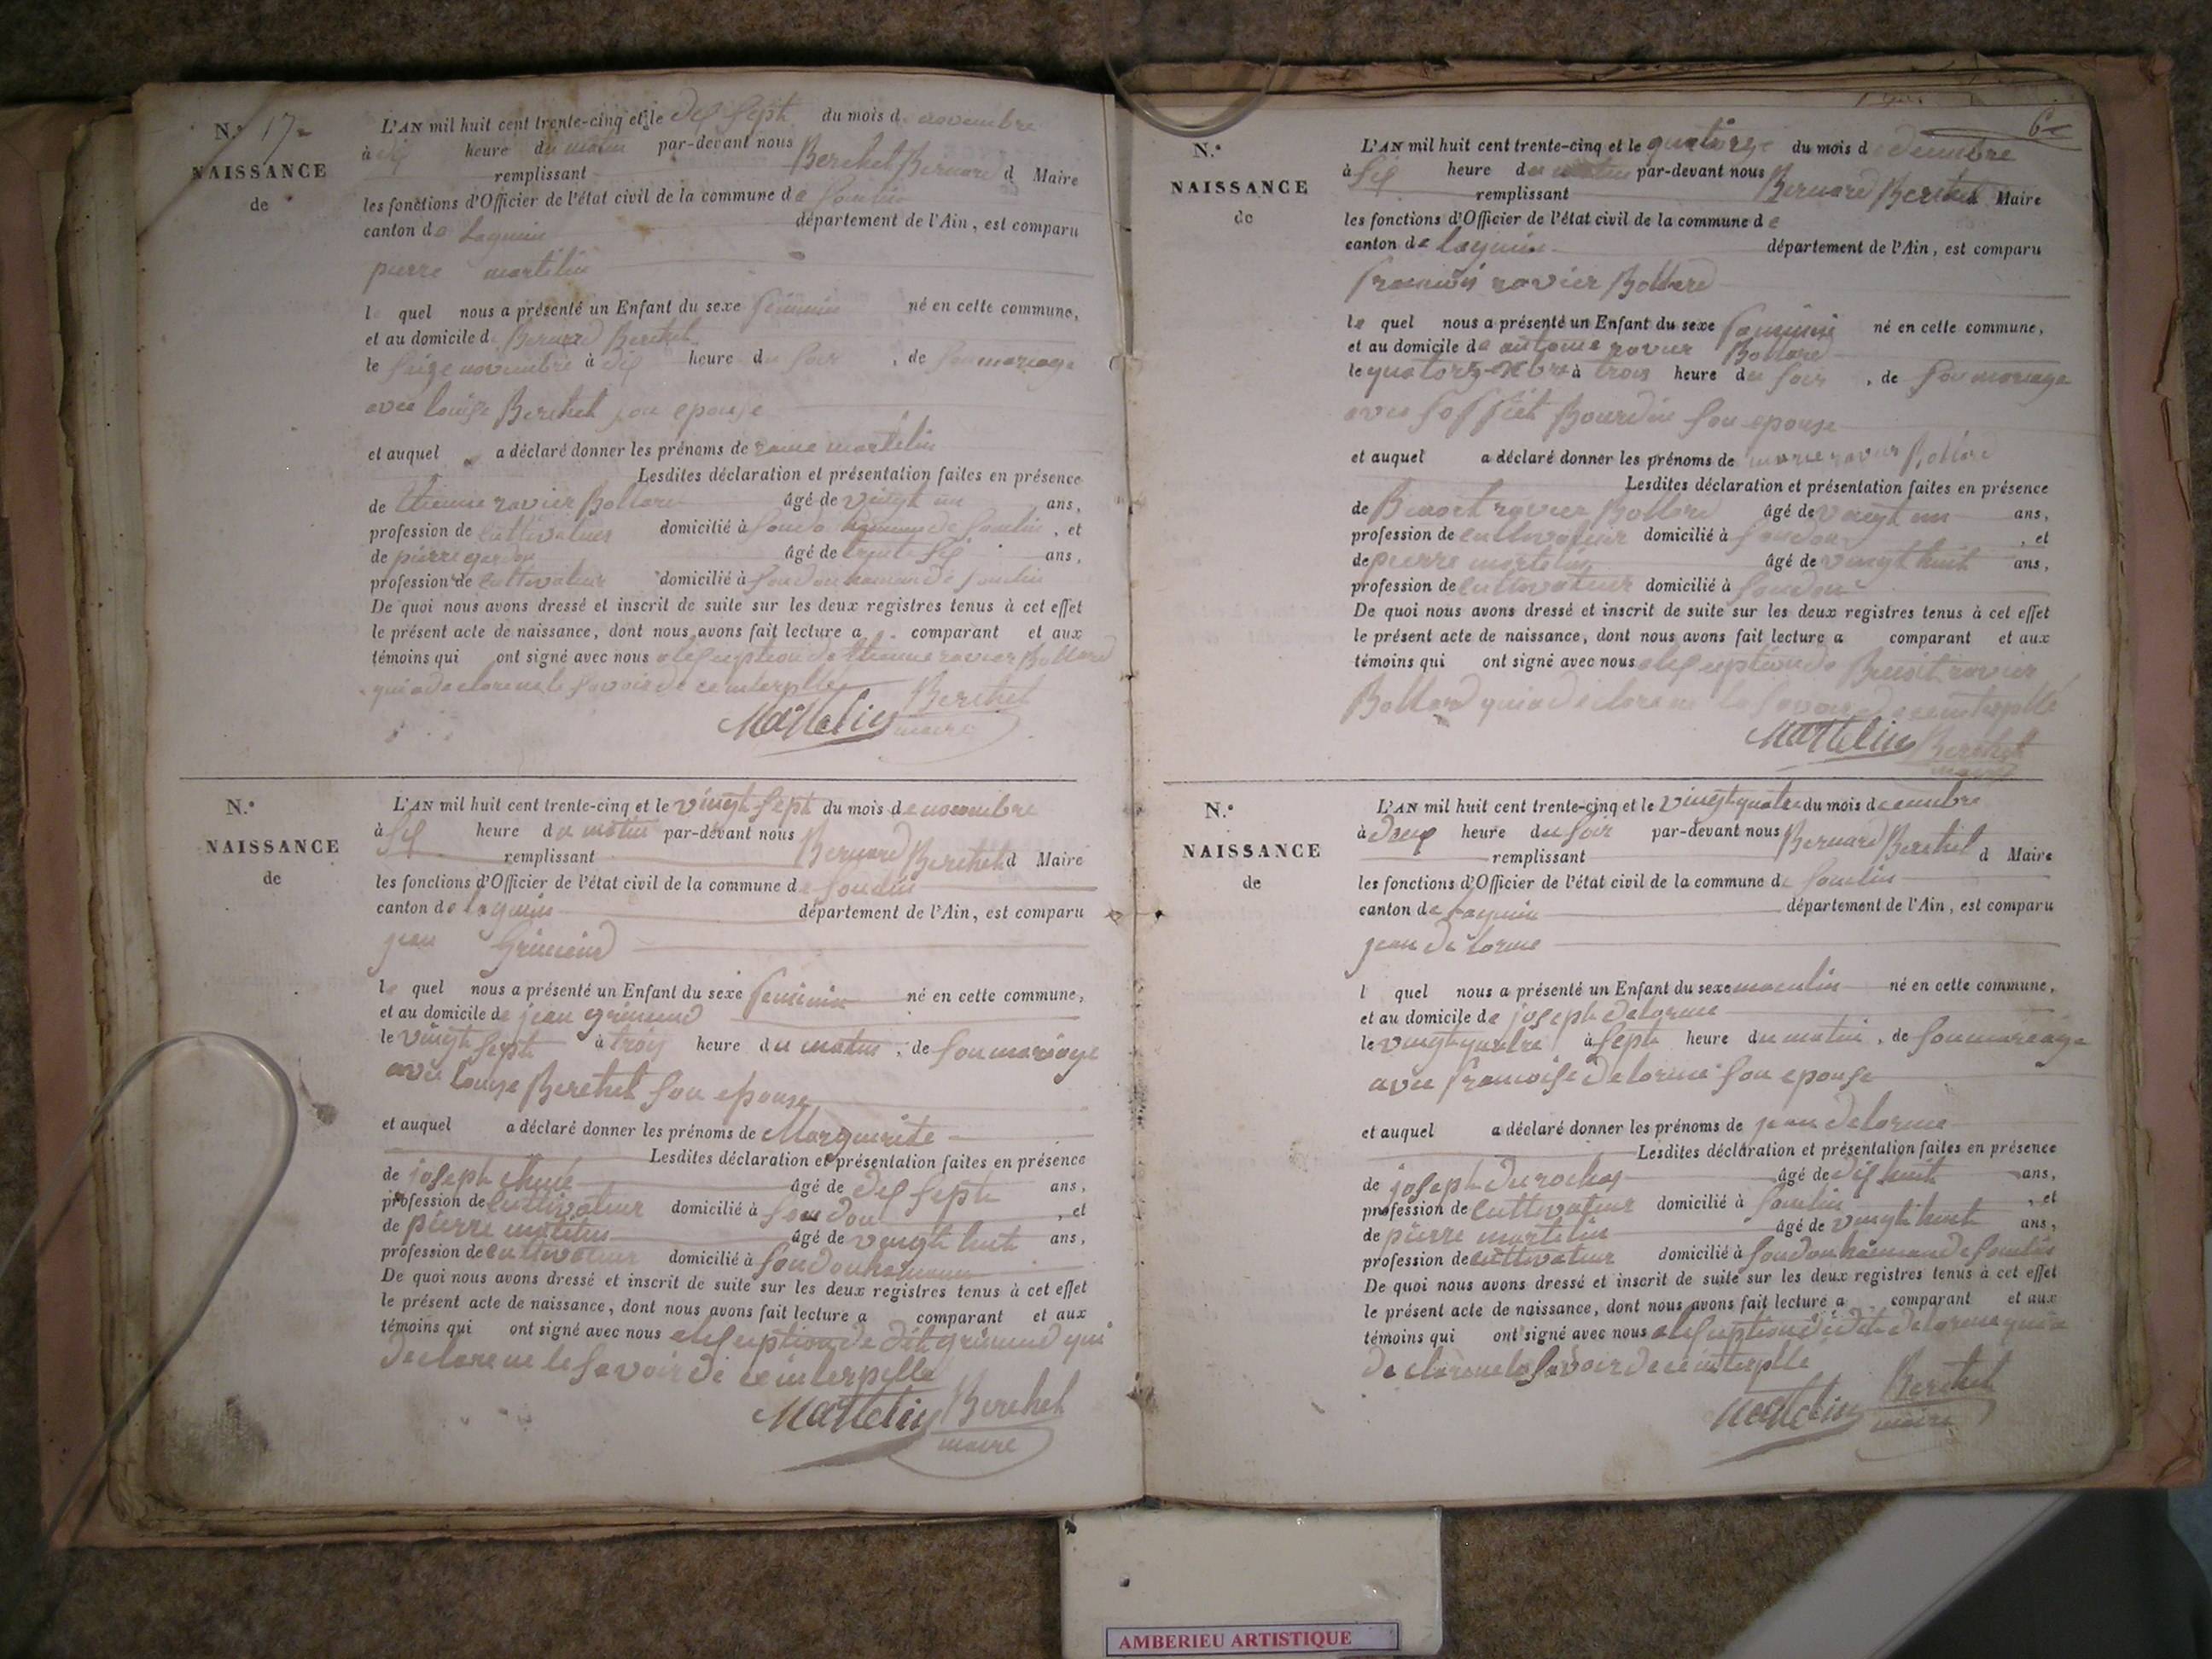 N.o 17
NAISSANCE
de
L'AN mil huit cent trente-cinq et le dix sept du mois de novembre
à dix heure du matin par-devant nous Berchet Bernard d Maire
remplissant
les fonctions d'Officier de l'état civil de la commune de Soudin
canton de lagnieu département de l'Ain, est comparu
pierre martelin
le quel nous a présenté un Enfant du sexe feminin né en cette commune,
et au domicile de Bernard Berchet
le seize novembre à dix heure du soir, de son mariage
avec louise Berchet son epouse
et auquel a déclaré donner les prénoms de martelin
Lesdites déclaration et présentation faites en présence
de Etienne ravier Bollard âgé de vingt un ans,
profession de cultivateur domicilié à , et
de pierre âgé de trente six ans,
profession de cultivateur domicilié à
De quoi nous avons dressé et inscrit de suite sur les deux registres tenus à cet effet
le présent acte de naissance, dont nous avons fait lecture a comparant et aux
témoins qui ont signé avec nous a lexeuption de Etienne ravier Bollard
qui a declare ne le savoir de ce interpelle
Martelin Berchet
maire
N.o
NAISSANCE
de
L'AN mil huit cent trente-cinq et le vingt sept du mois de novembre
à six heure du matin par-devant nous Bernard Berchet d Maire
remplissant
les fonctions d'Officier de l'état civil de la commune de
canton de lagnieu département de l'Ain, est comparu
jean Grimand
le quel nous a présenté un Enfant du sexe feminin né en cette commune,
et au domicile de jean grimand
le vingt sept à trois heure du matin, de son mariage
avec louise Berchet son epouse
et auquel a déclaré donner les prénoms de Marguerite
Lesdites déclaration et présentation faites en présence
de joseph âgé de dix sept ans,
profession de cultivateur domicilié à soudon , et
de pierre martelin âgé de vingt huit ans,
profession de cultivateur domicilié à soudon
De quoi nous avons dressé et inscrit de suite sur les deux registres tenus à cet effet
le présent acte de naissance, dont nous avons fait lecture a comparant et aux
témoins qui ont signé avec nous a lexeuption de dit grimand qui
declare ne le savoir de ce interpelle
Martelin Berchet
maire
6
N.o
NAISSANCE
de
L'AN mil huit cent trente-cinq et le quatorze du mois de decembre
à six heure du matin par-devant nous Bernard Berchet d Maire
remplissant
les fonctions d'Officier de l'état civil de la commune de
canton de lagnieu département de l'Ain, est comparu
francois ravier Bollard
le quel nous a présenté un Enfant du sexe feminin né en cette commune,
et au domicile de antoine ravier Bollard
le quatorze Xbre à trois heure du soir, de son mariage
avec Bourdin son epouse
et auquel a déclaré donner les prénoms de marie ravier Bollard
Lesdites déclaration et présentation faites en présence
de Benoit ravier Bollard âgé de vingt un ans,
profession de cultivateur domicilié à soudon , et
de pierre martelin âgé de vingt huit ans,
profession de cultivateur domicilié à soudon
De quoi nous avons dressé et inscrit de suite sur les deux registres tenus à cet effet
le présent acte de naissance, dont nous avons fait lecture a comparant et aux
témoins qui ont signé avec nous a lexeuption de Benoit ravier
Bollard qui a declare ne le savoir de ce interpellé
Martelin Berchet
maire
N.o
NAISSANCE
de
L'AN mil huit cent trente-cinq et le vingt quatre du mois decembre
à deux heure du soir par-devant nous Bernard Berchet d Maire
remplissant
les fonctions d'Officier de l'état civil de la commune de
canton de lagnieu département de l'Ain, est comparu
jean delorme
l quel nous a présenté un Enfant du sexe masculin né en cette commune,
et au domicile de joseph delorme
le vingt quatre à sept heure du matin, de son mariage
avec francoise delorme son epouse
et auquel a déclaré donner les prénoms de jean delorme
Lesdites déclaration et présentation faites en présence
de joseph durochas âgé de dix huit ans,
profession de cultivateur domicilié à , et
de pierre martelin âgé de vingt huit ans,
profession de cultivateur domicilié à soudon
De quoi nous avons dressé et inscrit de suite sur les deux registres tenus à cet effet
le présent acte de naissance, dont nous avons fait lecture a comparant et aux
témoins qui ont signé avec nous a lexeuption de dit delorme qui a
declare ne le savoir de ce interpellé
Martelin Berchet
maire
AMBERIEU ARTISTIQUE